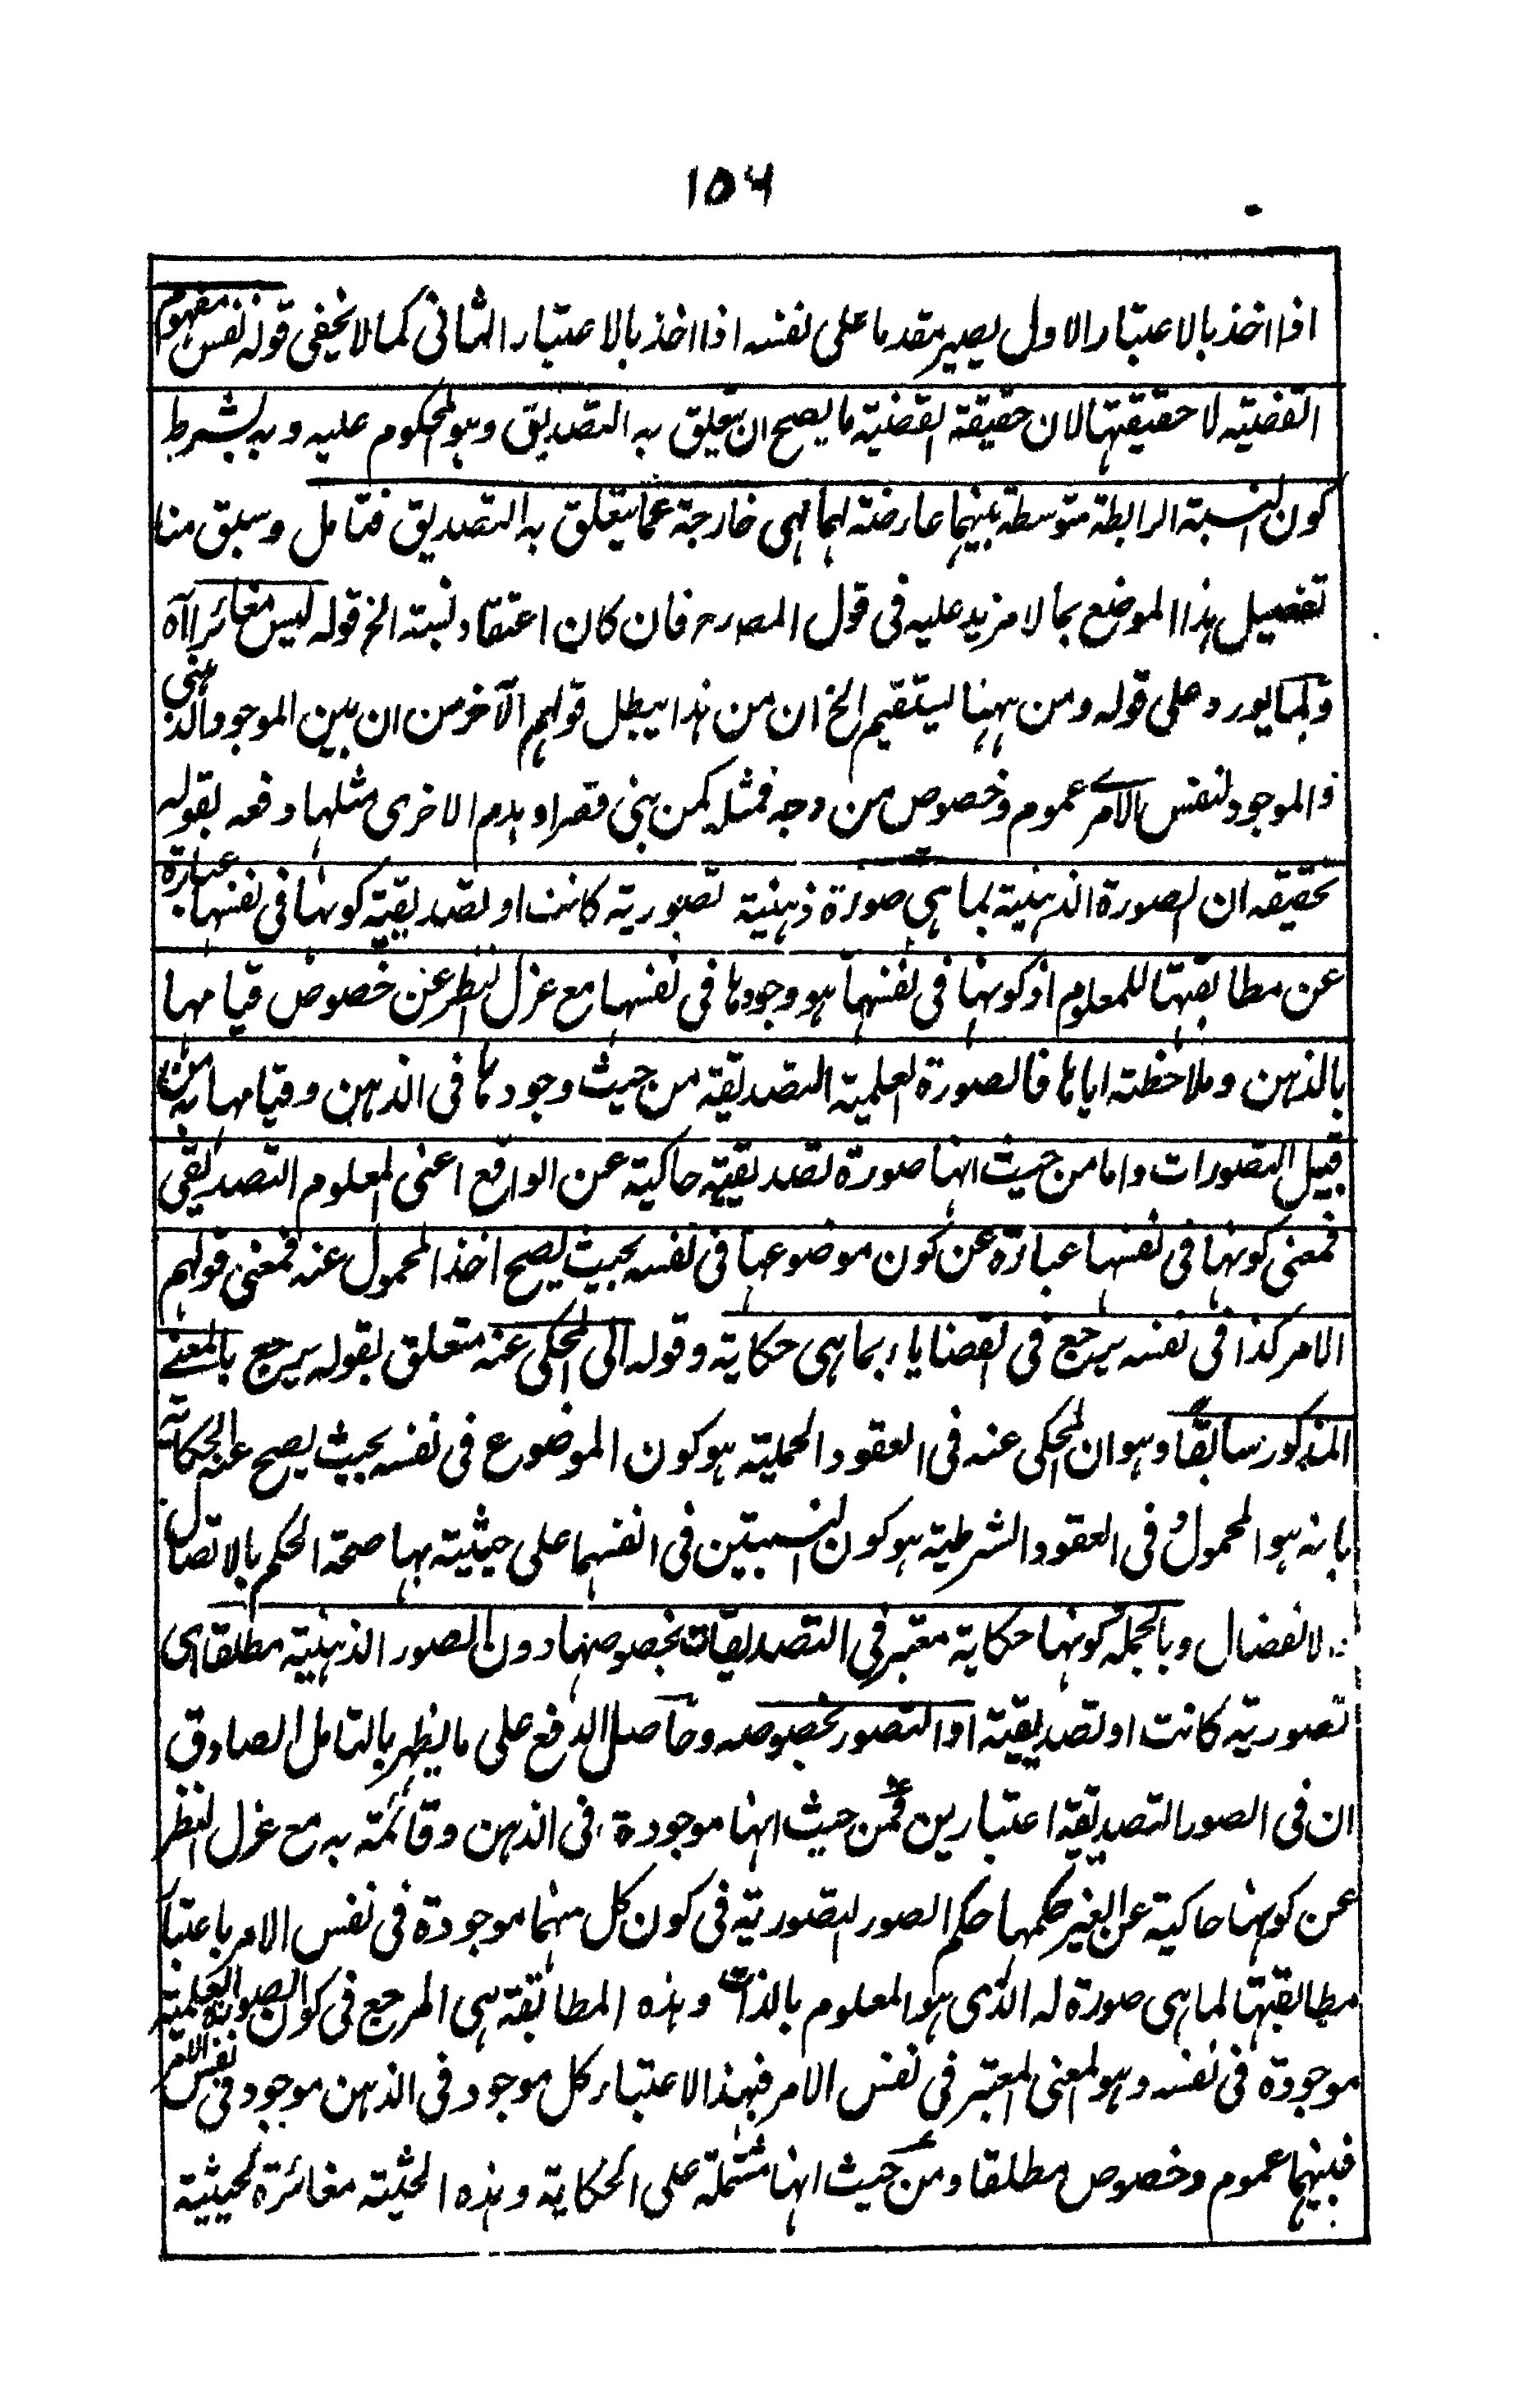 ۱۵۶
اذا اخذ بالاعتبار الاول يصير مقدما على نفسه اذا اخذ بالاعتبار الثانى كما لا يخفى قوله نفس مفهوم
القضية لا حقيقتها لان حقيقة القضية ما يصح ان يتعلق به التصديق وهو المحكوم عليه وبه بشرط
كون النسبة الرابطة متوسطة بينهما عارضة لهما فهى خارجة عما يتعلق به التصديق فتامل وسبق منا
تفصيل هذا الموضع بما لا مزيد عليه فى قول المصرح فان كان اعتقاد نسبة الخ قوله ليس مغائرا آه
ولما يورد على قوله ومن ههنا ليستقيم الخ ان من هذا يبطل قولهم الآخر من ان بين الموجود الذهنى
والموجود لنفس الامر عموم وخصوص من وجه فمثله كمن بنى قصرا وهدم الاخرى مثلها دفعه بقوله
تحقيقه ان الصورة الذهنية بما هى صورة ذهنية تصورية كانت او تصديقية كونها فى نفسها عبارة
عن مطابقتها للمعلوم اذ كونها فى نفسها هو وجودها فى نفسها مع عزل النظر عن خصوص قيامها
بالذهن وملاحظته اياها فالصورة العلمية التصديقية من حيث وجودها فى الذهن وقيامها به من
قبيل التصورات واما من حيث انها صورة تصديقية حاكية عن الواقع اعنى المعلوم التصديقى
فمعنى كونها فى نفسها عبارة عن كون موضوعها فى نفسه بحيث يصح اخذ المحمول عنه فمعنى قولهم
الامر كذا فى نفسه يرجع فى القضايا بما هى حكاية وقوله الى المحكى عنه متعلق بقوله يرجع بالمعنے
المذكور سابقًا وهو ان المحكى عنه فى العقود الحملية هو كون الموضوع فى نفسه بحيث يصح عنه الحكاية
بانه هو المحمول و فى العقود الشرطية هو كون النسبتين فى انفسهما على حيثية بها صحة الحكم بالاتصال
والانفصال وبالجملة كونها حكاية معتبر فى التصديقات بخصوصها دون الصور الذهنية مطلقا اى
تصورية كانت او تصديقية او التصور بخصوصه وحاصل الدفع على ما يظهر بالتامل الصادق
ان فى الصور التصديقية اعتبارين فمن حيث انها موجودة فى الذهن وقائمة به مع عزل النظر
عن كونها حاكية عن الغير حكمها حكم الصور التصورية فى كون كل منهما موجودة فى نفس الامر باعتبار
مطابقتها لما هى صورة له الذى هو المعلوم بالذات وهذه المطابقة هى المرجع فى كون الصورة العلمية
موجودة فى نفسه وهو المعنى المعتبر فى نفس الامر فبهذا الاعتبار كل موجود فى الذهن موجود فى نفس الامر
فبينهما عموم وخصوص مطلقا ومن حيث انها مشتملة على الحكاية وهذه الحيثية مغائرة لحيثية